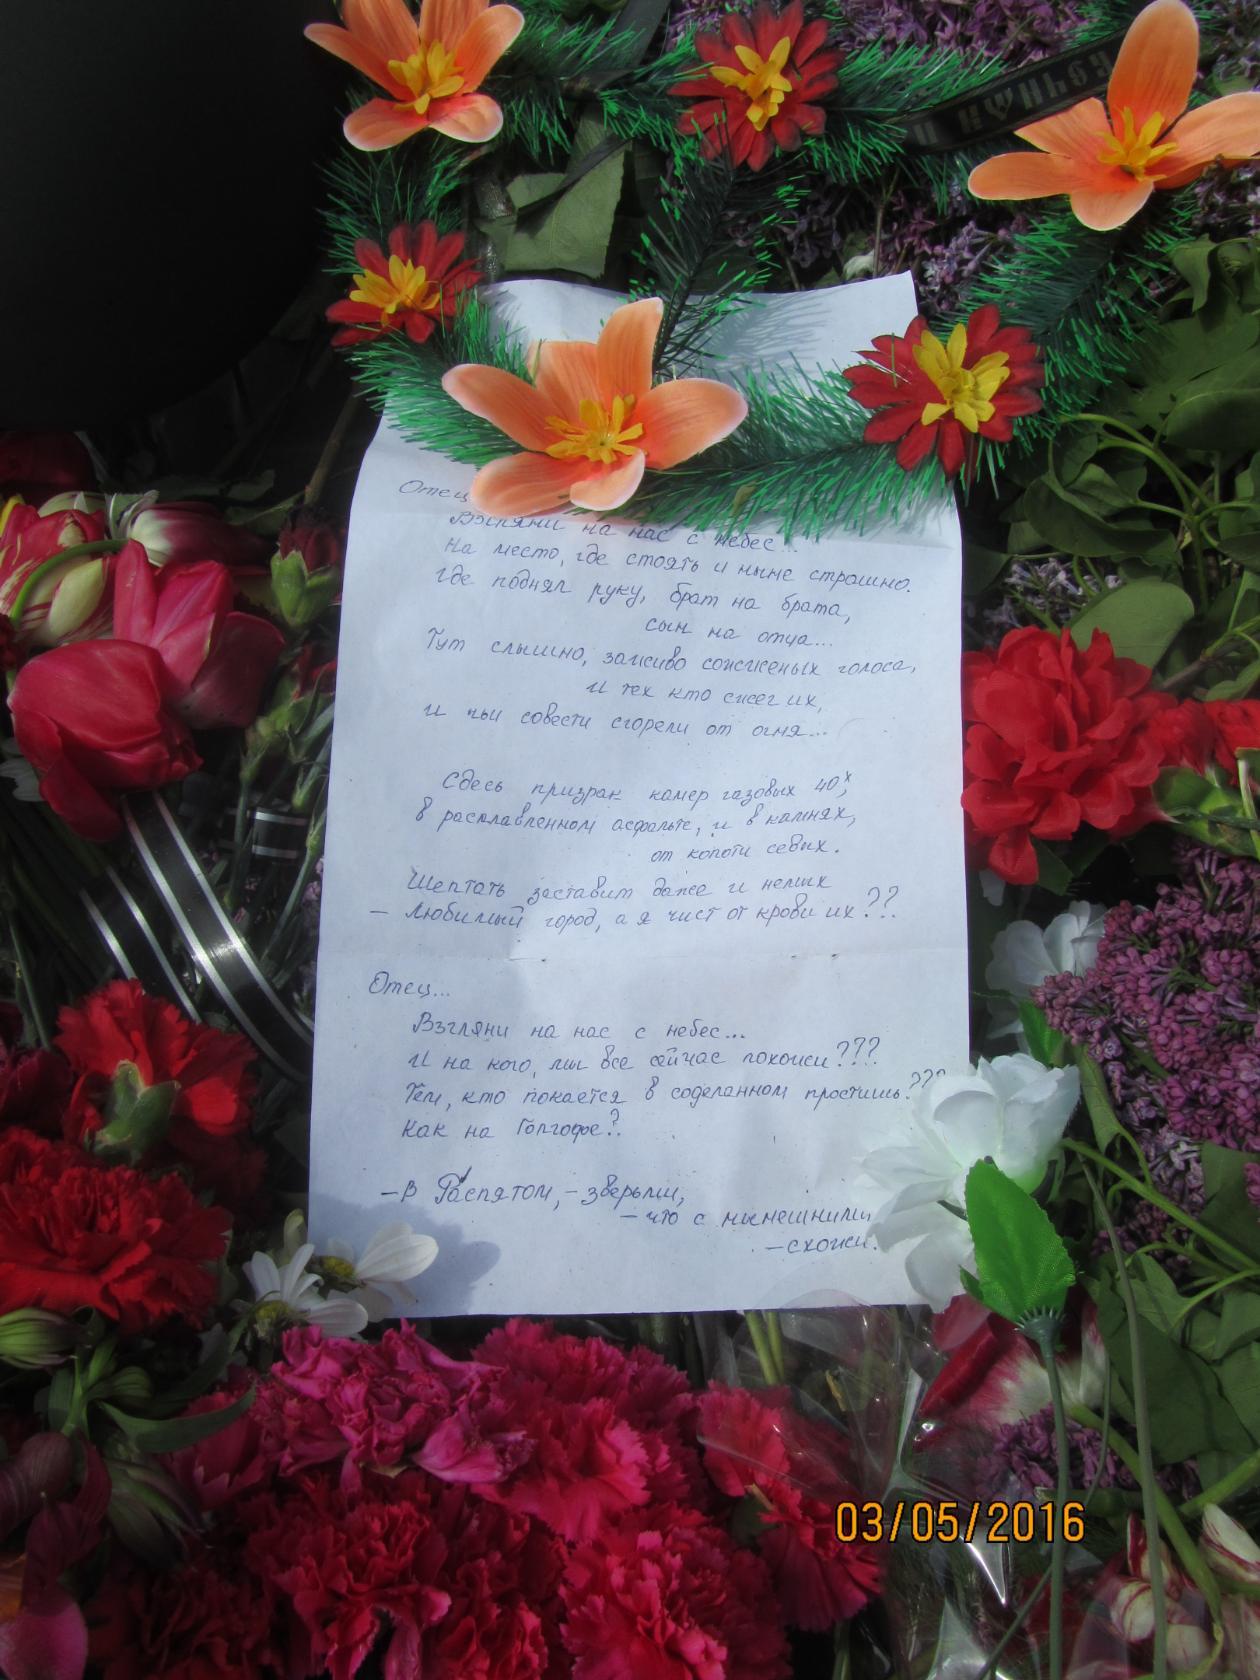 Отец
Взгляни на нас с небес...
На место, где стоять и ныне страшно.
где поднял руку, брат на брата,
сын на отца...
Тут слышно, заживо сожженых голоса,
и тех кто сжег их,
и чьи совести сгорели от огня...
Сдесь призрак камер газовых 40х,
в расплавленном асфальте, и в камнях,
от копоти седых.
Шептать заставит даже и немых
- Любимый город, а я чист от крови их??
Отец...
Взгляни на нас с небес...
и на кого, мы все сейчас похожи???
Тем, кто покается в соделанном простишь.???
Как на Голгофе?.
-В Распятом, - зверьми,
- что с нынешними
- схожи.
03/05/2016